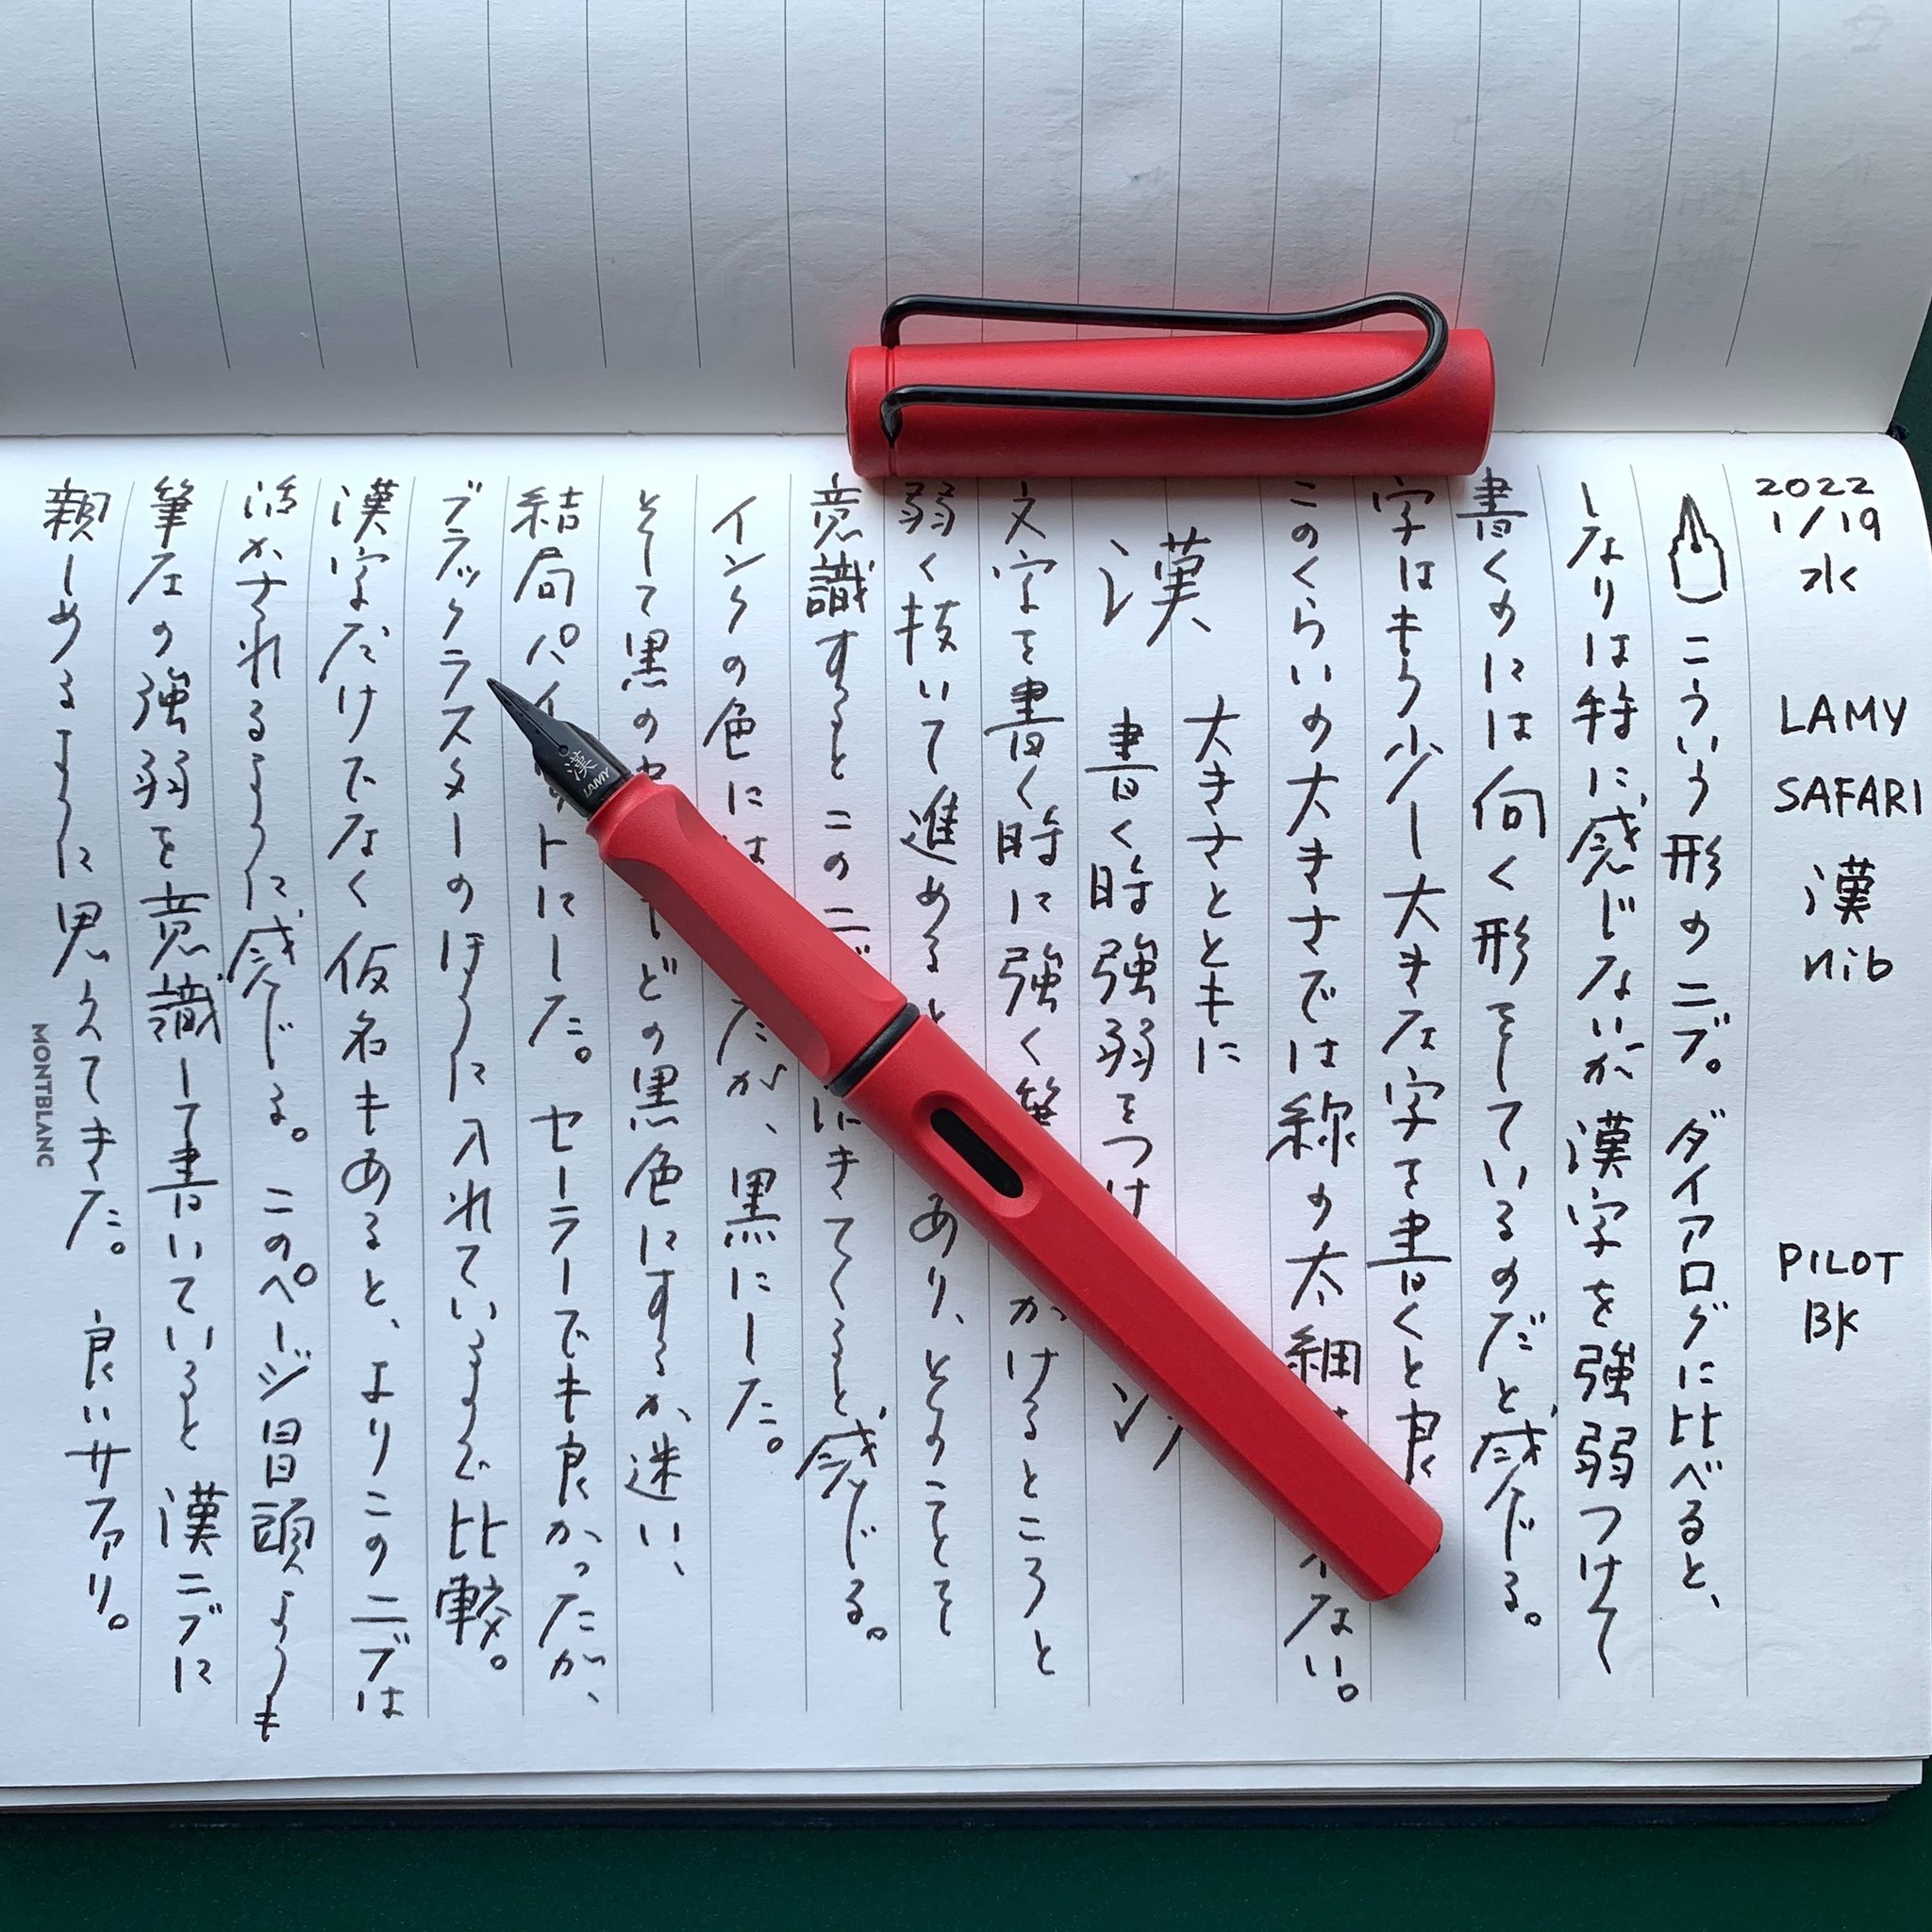 2022
1/19
水
LAMY
SAFARI
漢
nib
PILOT
BK
こういう形のニブ。ダイアログに比べると、
しなりは特に感じないが漢字を強弱つけて
書くのには向く形をしているのだと感じる。
字はもう少し大きな字を書くと良
このくらいの大きさでは線の太細 ない。
大きさとともに
漢 書く時強弱をつけ
文字を書く時に強く筆 かけるところと
弱く抜いて進める あり、とのことを
意識するとこのニブ きてくると感じる。
インクの色に だが、黒にした。
そして黒の どの黒色にするか迷い、
結局パイロットにした。セーラーでも良かったが、
ブラックラスターのほうに入れているので比較。
漢字だけでなく仮名もあると、よりこのニブは
活かされるように感じる。このページ冒頭よりも
筆圧の強弱を意識して書いていると漢ニブに
親しめるように思えてきた。良いサファリ。
MONTBLANC
漢
LAMY